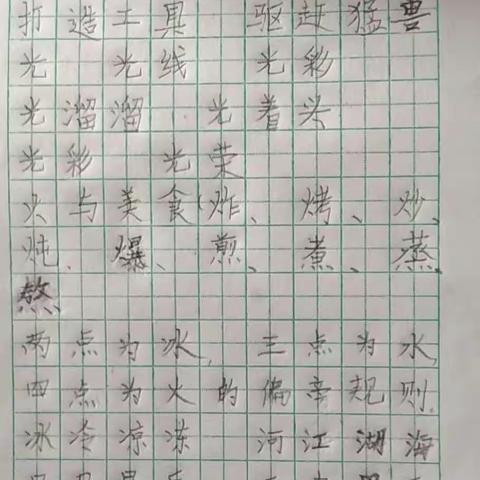 打造工具 驱赶猛兽
光 光线 光彩
光溜溜 光着头
光彩 光荣
火与美食(炸、烤、炒、
炖、爆、煎、煮、蒸、
熬
两点为冰,三点为水,
四点为火的偏旁规则.
冰冷凉冻 河江湖海